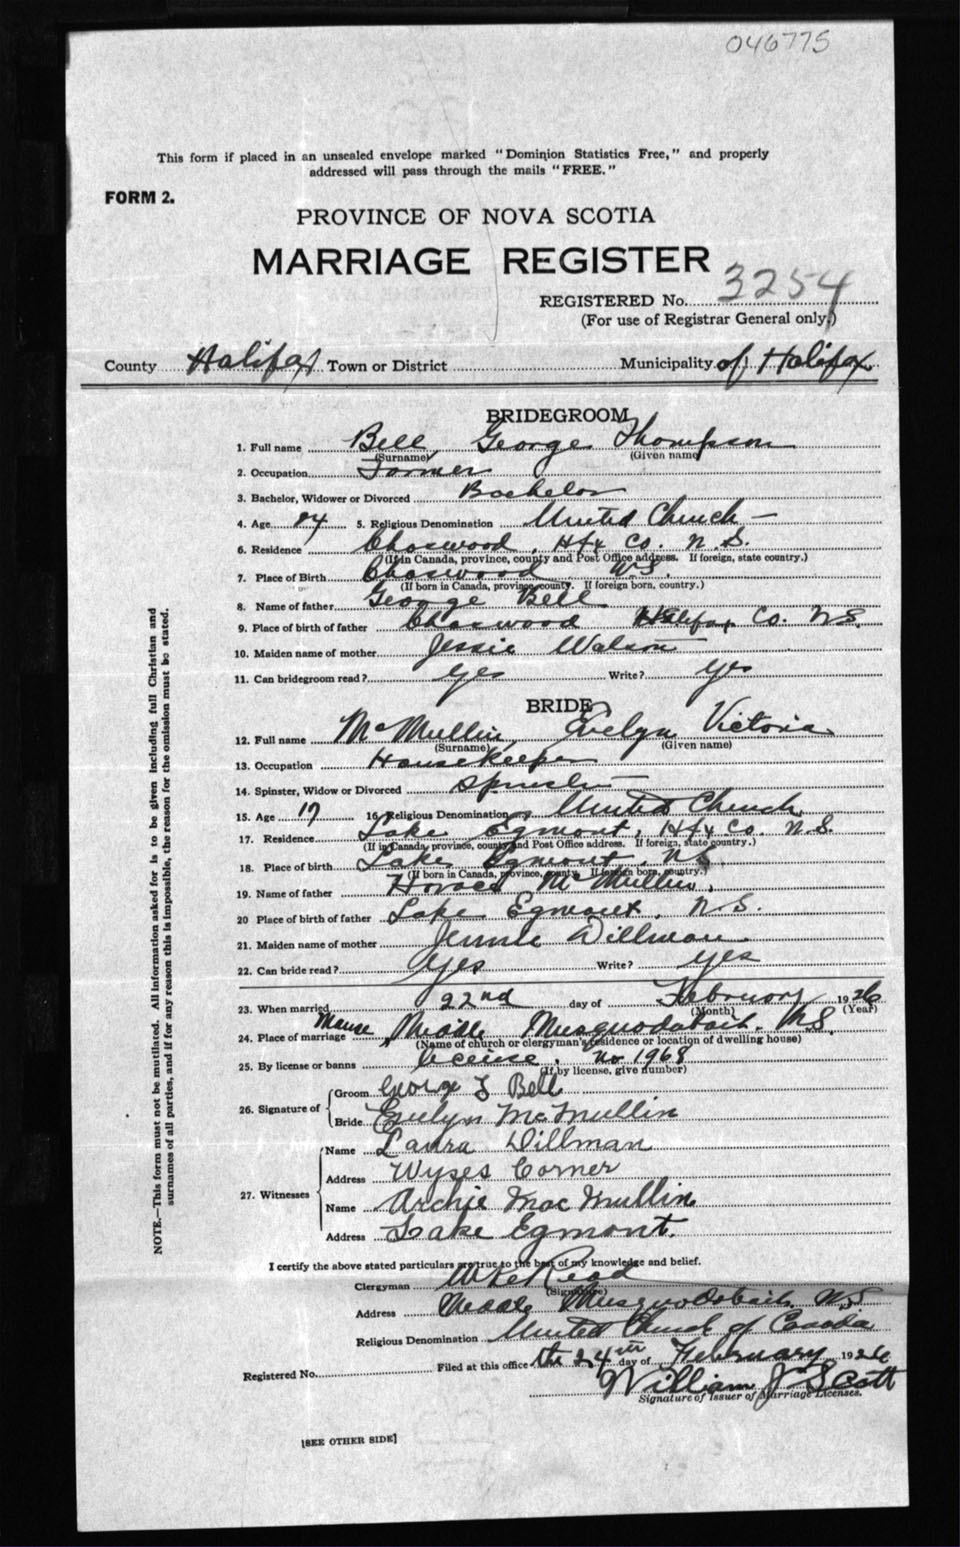 046775
This form if placed in an unsealed envelope marked "Dominion Statistics Free," and properly
addressed will pass through the mails "FREE."
FORM 2.
PROVINCE OF NOVA SCOTIA
MARRIAGE REGISTER
REGISTERED No. 3254
(For use of Registrar General only.)
County Halifax Town or District Municipality of Halifax
BRIDEGROOM
1. Full name Bell, George Thompson
(Surname) (Given name)
2. Occupation Farmer
3. Bachelor, Widower or Divorced Bachelor
4. Age 24 5. Religious Denomination United Church —
6. Residence Chaswood, Hfx Co. N.S.
(If in Canada, province, county and Post Office address. If foreign, state country.)
7. Place of Birth Chaswood N.S.
(If born in Canada, province, county. If foreign born, country.)
8. Name of father George Bell
9. Place of birth of father Chaswood Halifax Co. N.S.
10. Maiden name of mother Jessie Watson
11. Can bridegroom read? yes Write? yes
BRIDE
12. Full name McMullin, Evelyn Victoria
(Surname) (Given name)
13. Occupation Housekeeper
14. Spinster, Widow or Divorced Spinster
15. Age 17 16 Religious Denomination United Church
17. Residence Lake Egmont, Hfx Co. N.S.
(If in Canada, province, county and Post Office address. If foreign, state country.)
18. Place of birth Lake Egmont, N.S.
(If born in Canada, province, county. If foreign born, country.)
19. Name of father Horace McMullin,
20 Place of birth of father Lake Egmont, N.S.
21. Maiden name of mother Jennie Dillman
22. Can bride read? yes Write? yes
23. When married 22nd day of February 1926
(Month) (Year)
24. Place of marriage Manse, Middle Musquodoboit, N.S.
(Name of church or clergyman's residence or location of dwelling house)
25. By license or banns license. No 1968
(If by license, give number)
26. Signature of Groom George T Bell
Bride Evelyn McMullin
27. Witnesses Name Laura Dillman
Address Wyses Corner
Name Archie MacMullin
Address Lake Egmont.
I certify the above stated particulars are true to the best of my knowledge and belief.
Clergyman Read
(Signature)
Address Middle Musquodoboit, N.S
Religious Denomination United Church of Canada
Registered No. Filed at this office the 24th day of February 1926
William J Scott
Signature of Issuer of Marriage Licenses.
[SEE OTHER SIDE]
NOTE.—This form must not be mutilated. All information asked for is to be given including full Christian and
surnames of all parties, and if for any reason this is impossible, the reason for the omission must be stated.